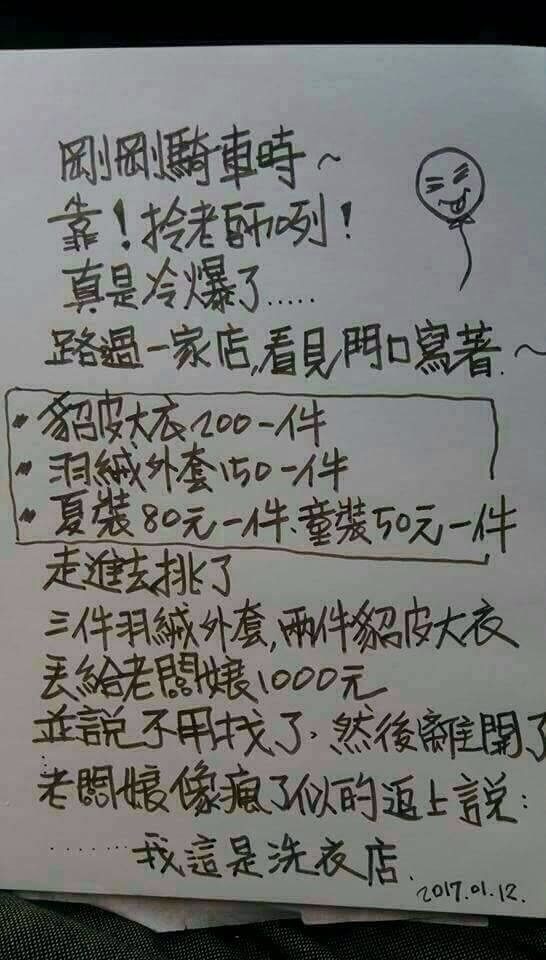 剛剛騎車時~
靠!拎老師咧!
真是冷爆了.....
路過一家店,看見門口寫著.~
貂皮大衣200一件
羽緘外套150一件
夏裝80元一件、童裝50元一件
走進去挑了
三件羽緘外套,兩件貂皮大衣
丟給老闆娘1000元
並說不用找了、然後離開了
...老闆娘像瘋了似的追上說:
......我這是洗衣店.
2017.01.12.